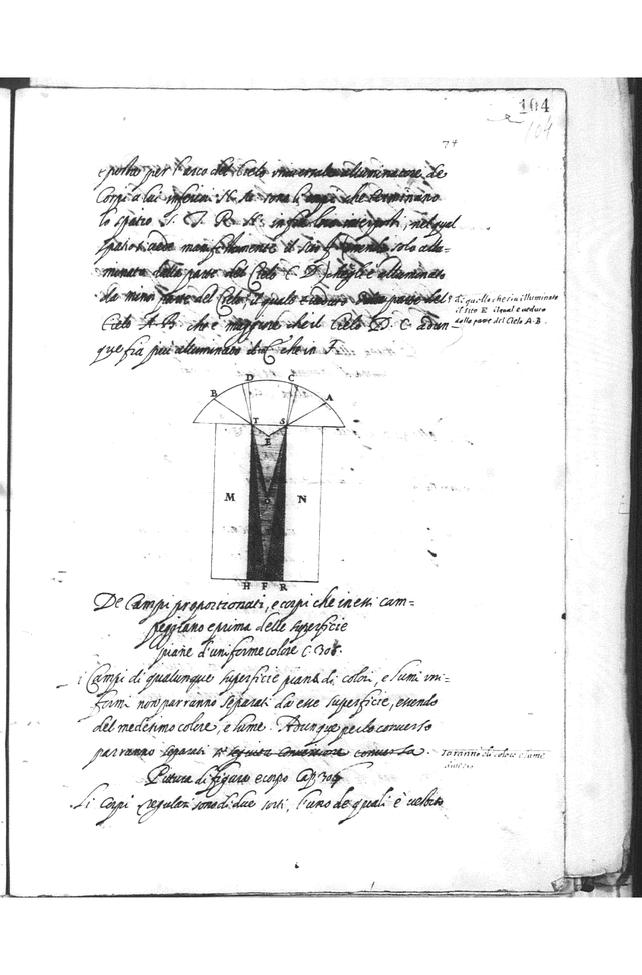 104
104
74
e posto per l'arco del Cielo universale illuminatore de
Corpi a lui inferiori N. M. sono li campi che terminano
lo spatio S. T. R. H. infra loro interposti, nel qual
spatio si vede manifestamente il sito F. essendo solo allu=
minato dalla parte del Cielo C. D. è illuminato
da minor parte del Cielo il quale è veduto dalla parte del
Cielo A. B. che è maggiore che il Cielo D. C. adun
que fia più alluminato il E. che in F.
di quello che sia illuminato
il sito E. il qual è veduto
dalla parte del Cielo A. B.
D C
B A
T S
E
M N
H F R
De Campi proportionati, e corpi che in essi cam=
peggiano e prima delle superficie
piane d'uniforme colore C. 308.
i Campi di qualunque superficie piana di colori, e lumi uni=
formi non parranno separati da esse superficie, essendo
del medesimo colore, e lume. Adunque per lo converso
parranno separati
saranno di colore e lume
diversi
Pittura di figura e corpo Cap. 309
Li Corpi regulari sono di due sorti, l'uno de quali è vestito